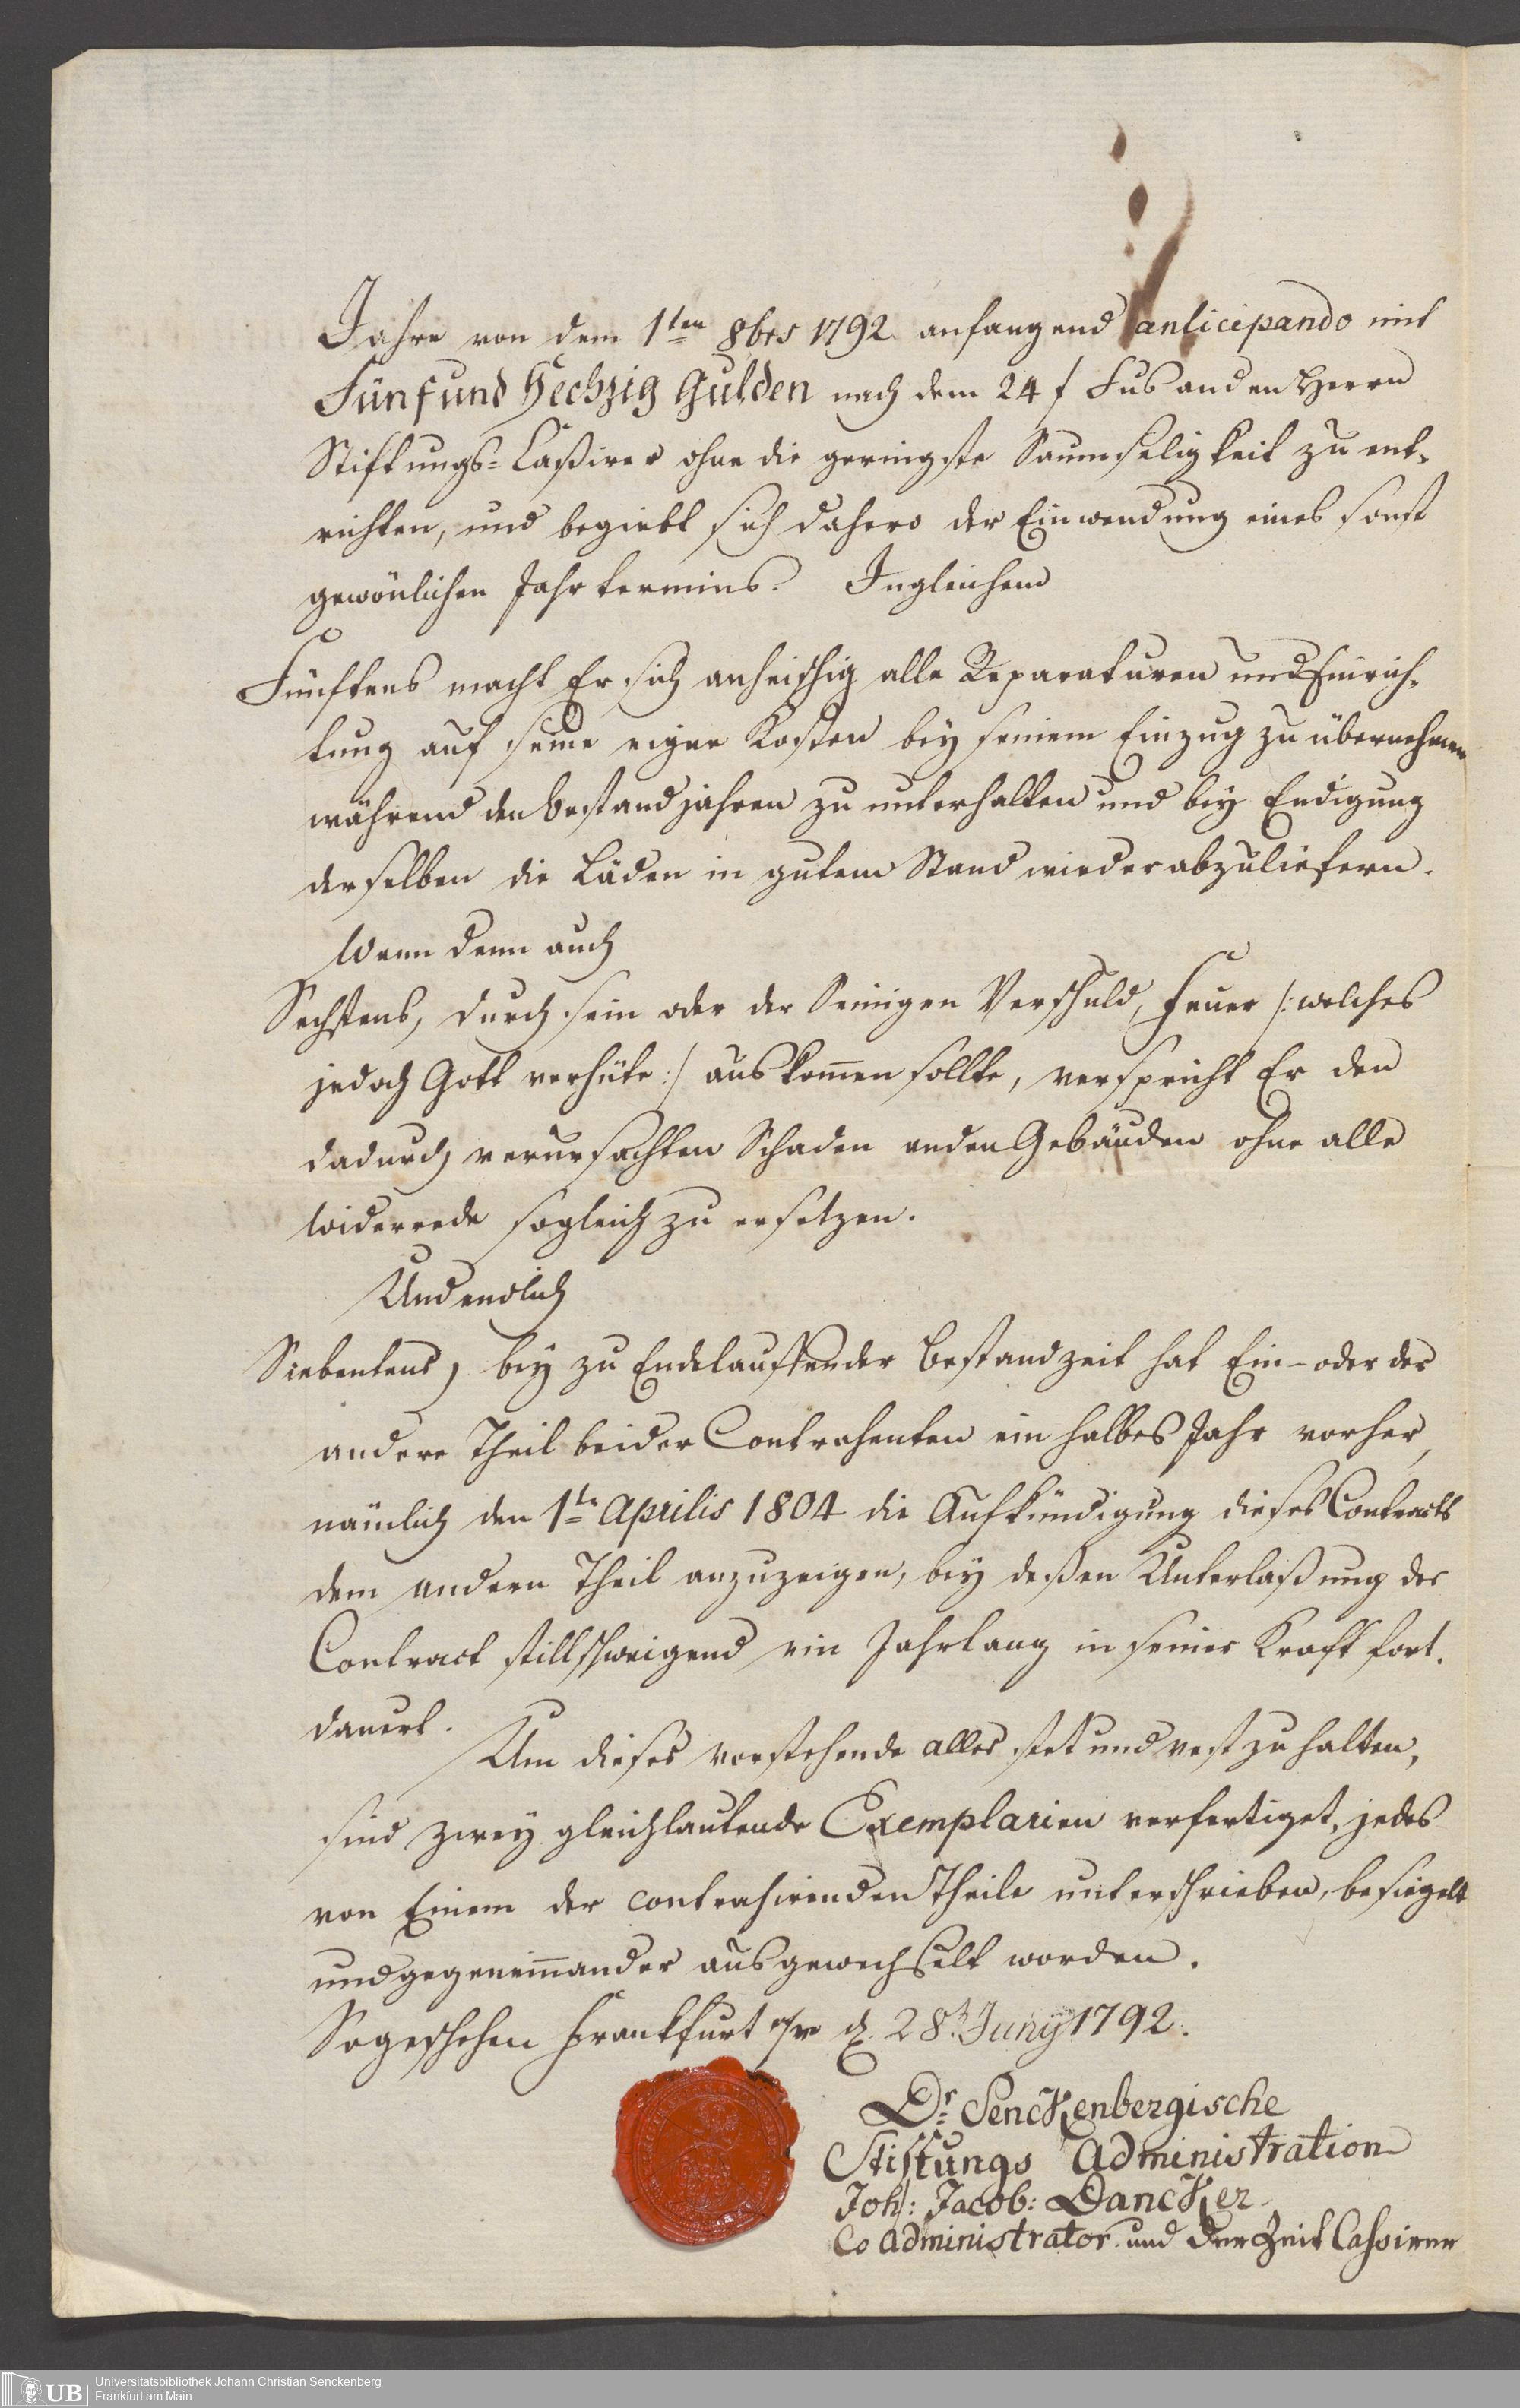 Jahre von dem 1ten 8brs 1792 anfangend anticipando mit
Fünf und Sechzig Gulden nach dem 24 f Fus an den Herrn
Stiftungs=Caßirer ohne die geringste Saumseligkeit zu ent-
richten, und begiebt sich dahero der Einwendung eines sonst
gewönlichen Jahrtermins. Ingleichem
Fünftens macht Er sich anheischig alle Reparaturen und Einrich-
tung auf seine eigne Kosten bey seinem Einzug zu übernehmen
während den Bestandjahren zu unterhalten und bey Endigung
derselben die Läden in gutem Stand wieder abzuliefern.
Wenn denn auch
Sechstens, durch sein oder der Seinigen Verschuld, Feuer /: welches
jedoch Gott verhüte :/ auskom̄en sollte, verspricht Er den
dadurch verursachten Schaden an den Gebäuden ohne alle
Widerrede sogleich zu ersetzen.
Und endlich
Siebentens, bey zu Endelauffender Bestandzeit hat Ein- oder der
andere Theil beider Contrahenten ein halbes Jahr vorher,
nämlich den 1ten Aprilis 1804 die Aufkündigung dieses Contracts
dem andern Theil anzuzeigen, bey deßen Unterlaßung der
Contract stillschweigend ein Jahrlang in seiner Kraft fort-
dauert.
Um dieses vorstehende alles stet und vest zu halten,
sind zwey gleichlautende Exemplarien verfertiget, jedes
von Einem der contrahirenden Theile unterschrieben, besiegelt
und gegeneinander ausgewechselt worden.
So geschehen Frankfurt a/m d. 28t Juny 1792.
Dr. Senckenbergische
Stiftungs Administration
Joh: Jacob: Dancker
Co Administrator und der Zeit Cassirer
UB Universitätsbibliothek Johann Christian Senckenberg
Frankfurt am Main